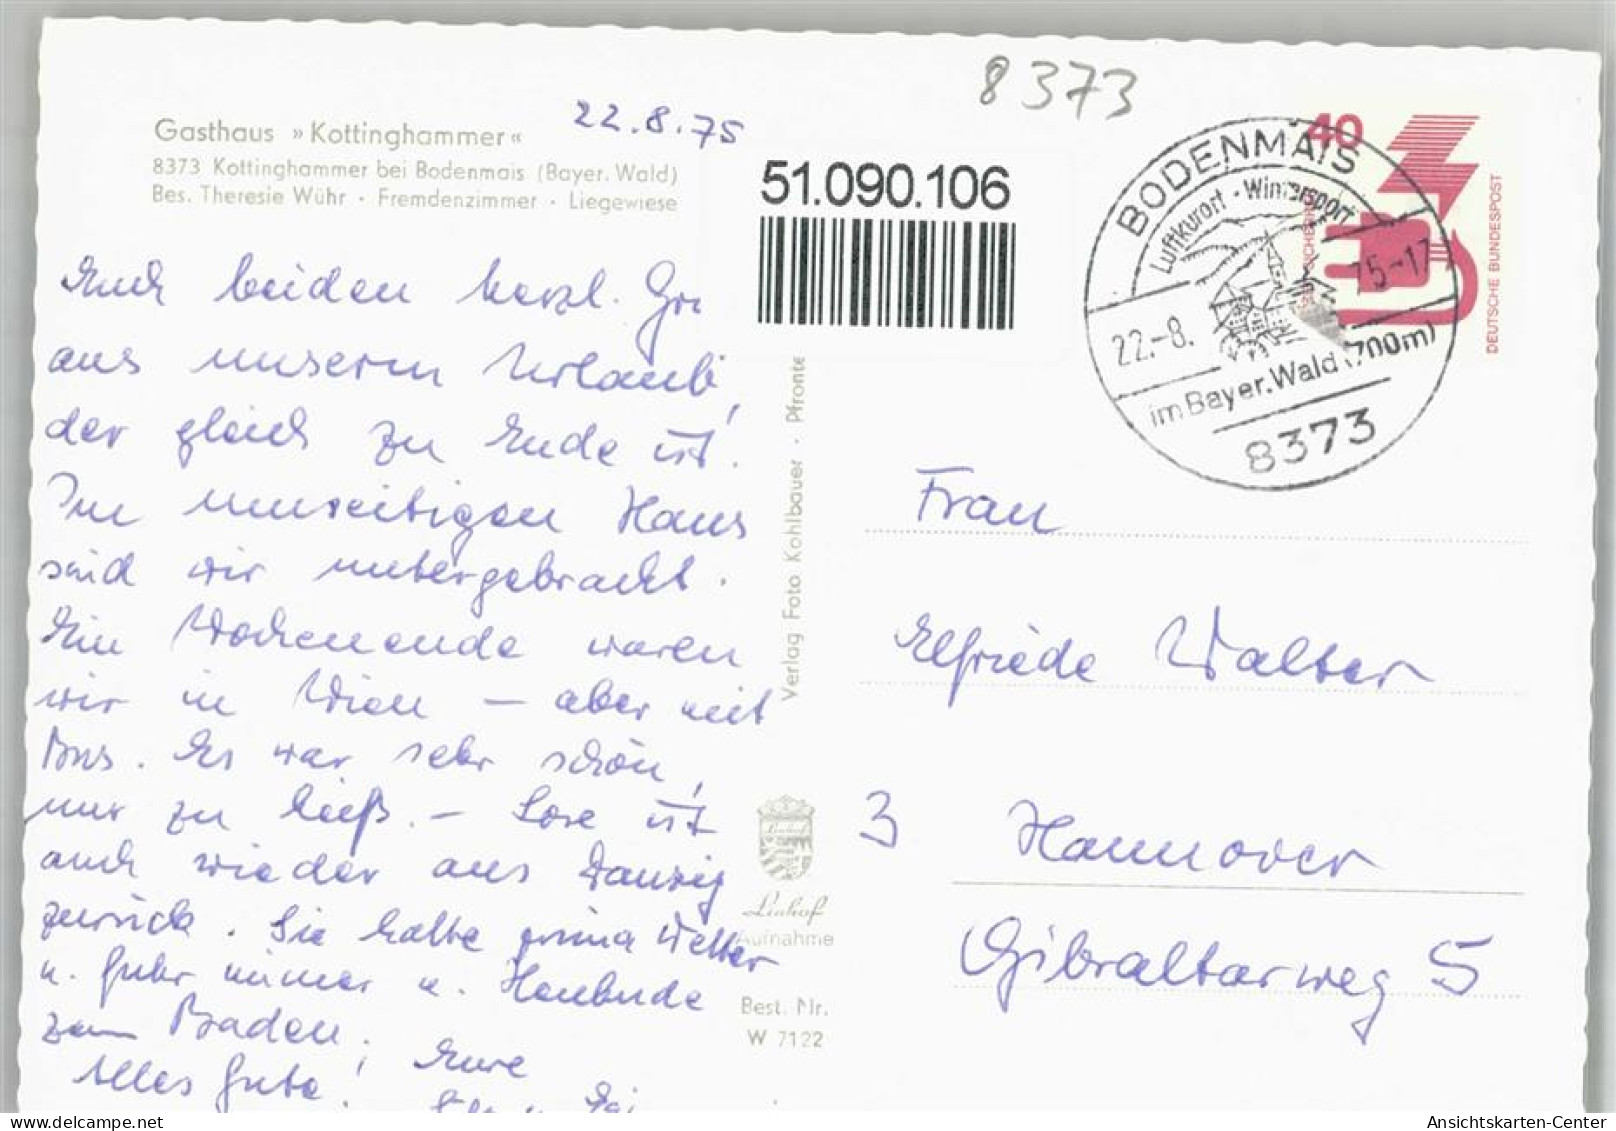 8373
22.8.75
Gasthaus »Kottinghammer«
8373 Kottinghammer bei Bodenmais (Bayer. Wald)
Bes. Theresie Wühr · Fremdenzimmer · Liegewiese
51.090.106
BODENMAIS
Luftkurort - Wintersport
22.-8. 75-17
im Bayer. Wald (700m)
8373
40
DEUTSCHE BUNDESPOST
Euch beiden herzl. Grü
aus unserm Urlaub,
der gleich zu Ende ist.
Im umseitigen Haus
sind wir untergebracht.
Ein Wochenende waren
wir in Wien – aber mit
Bus. Es war sehr schön,
nur zu heiß. – Lore ist
auch wieder aus Danzig
zurück. Sie hatte prima Wetter
u. fuhr immer n. Heubude
zum Baden.
Alles Gute! Eure
Verlag Foto Kohlbauer · Pfronte
Linhof
Linhof
Aufnahme
Best. Nr.
W 7122
Frau
Elfriede Walter
3 Hannover
Gibraltarweg 5
Ansichtskarten-Center